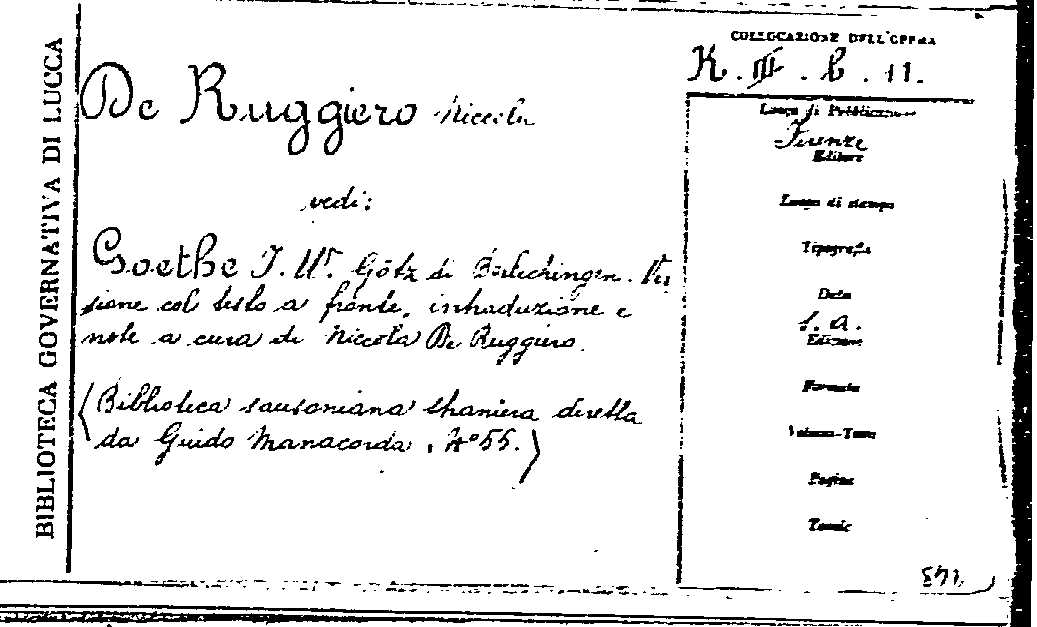 BIBLIOTECA GOVERNATIVA DI LUCCA
De Ruggiero Niccola
vedi:
Goethe J. W. Götz di Berlichingen. Ver
sione col testo a fronte, introduzione e
note a cura di Niccola De Ruggiero.
(Biblioteca sansoniana straniera diretta
da Guido Manacorda, N° 55.)
COLLOCAZIONE DELL'OPERA
K. III. b. 11.
Luogo di Pubblicazione
Firenze
Editore
Luogo di stampa
Tipografia
Data
s. a.
Edizione
Formato
Volume-Tomo
Pagine
Tavole